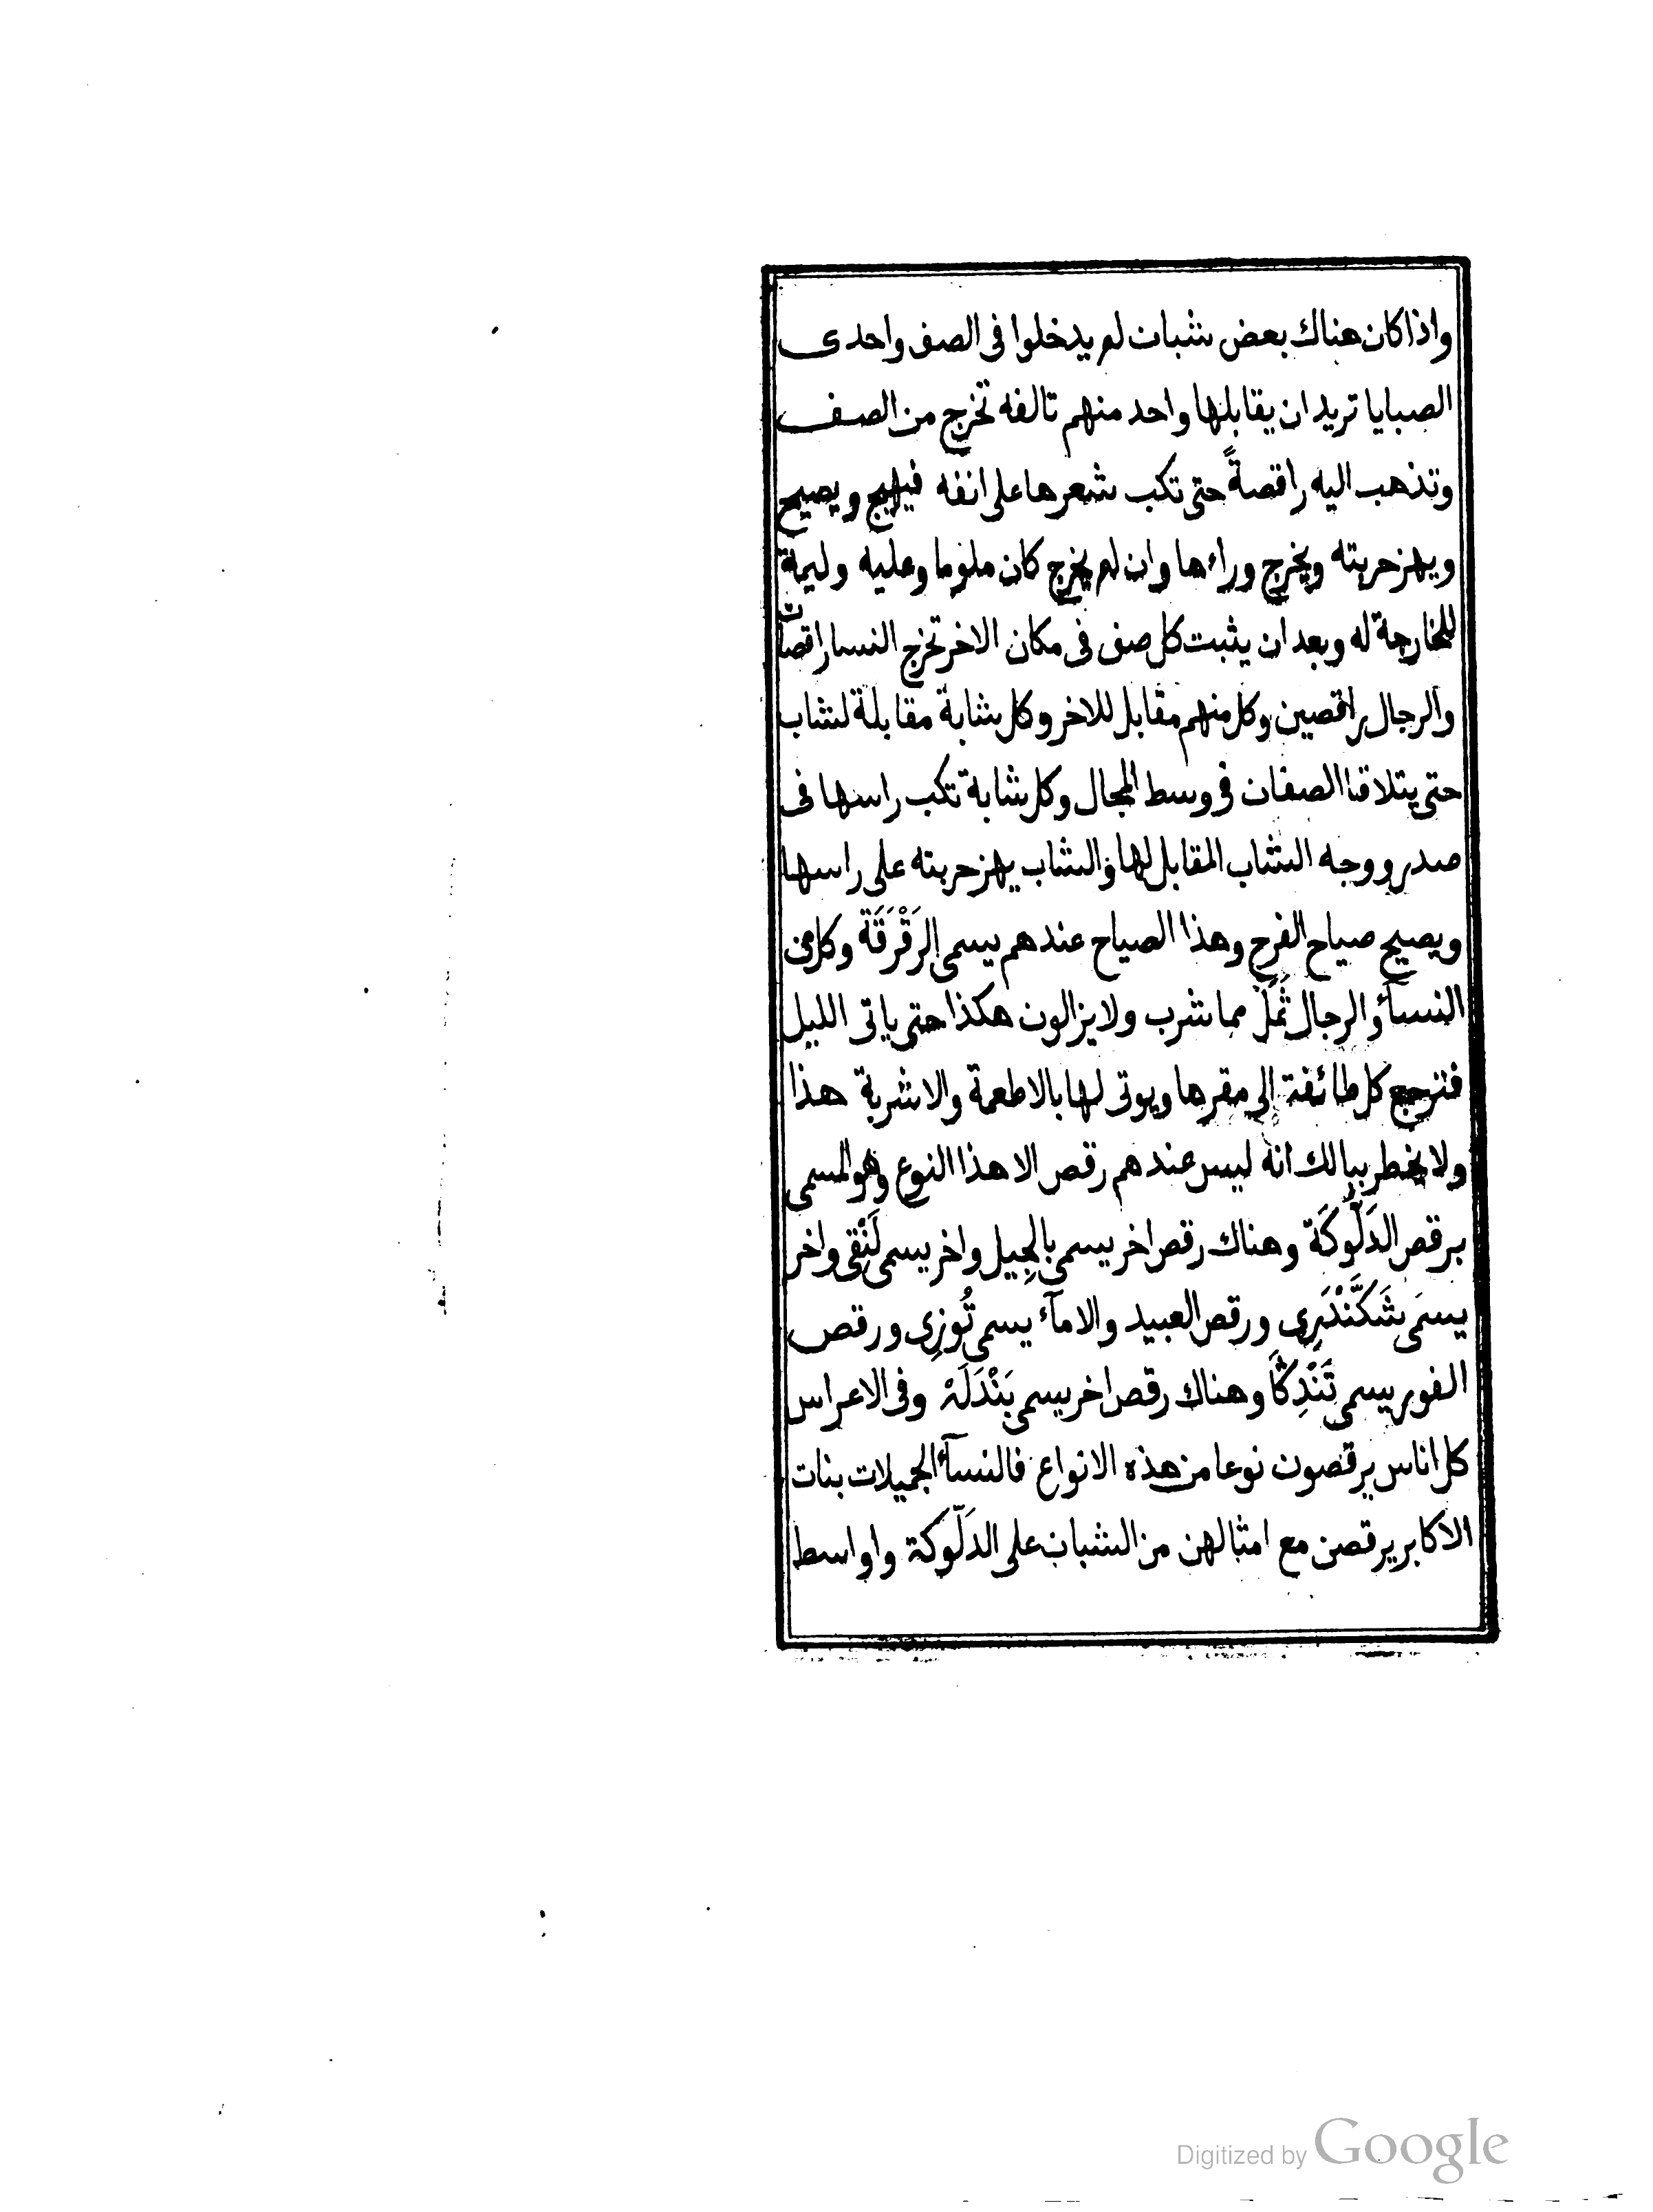 واذا كان هناك بعض شبان لم يدخلوا فى الصف واحدى
الصبايا تريد ان يقابلها واحد منهم تالفه تخرج من الصف
وتذهب اليه راقصةً حتى تكب شعرها على انفه فيهيج ويصيح
ويهز حربته ويخرج وراءها وان لم يخرج كان ملوما وعليه وليمة
للخارجة له وبعد ان يثبت كل صف فى مكان الاخر تخرج النسا راقصات
والرجال راقصين وكل منهم مقابل للاخر وكل شابة مقابلة لشاب
حتى يتلاقا الصفان فى وسط المجال وكل شابة تكب راسها فى
صدر ووجه الشاب المقابل لها والشاب يهز حربته على راسها
ويصيح صياح الفرح وهذا الصياح عندهم يسمى الرَقْرَقَة وكل من
النسآء والرجال ثَمَل مما شرب ولا يزالون هكذا حتى ياتى الليل
فترجع كل طائفة الى مقرها ويوتى لها بالاطعمة والاشربة هذا
ولا يخطر ببالك انه ليس عندهم رقص الا هذا النوع وهو المسمى
برقص الدَلّوكَة وهناك رقص اخر يسمى بالجِيل واخر يسمى لَنْقِى واخر
يسمَى شَكَّنْدَرِى ورقص العبيد والامآء يسمى تُوزِى ورقص
الفور يسمى تَنْدِكَّا وهناك رقص اخر يسمى بَنْدَلَهْ وفى الاعراس
كل اناس يرقصون نوعا من هذه الانواع فالنسآء الجميلات بنات
الاكابر يرقصن مع امثالهن من الشبان على الدَلّوكة واواسط
Digitized by Google